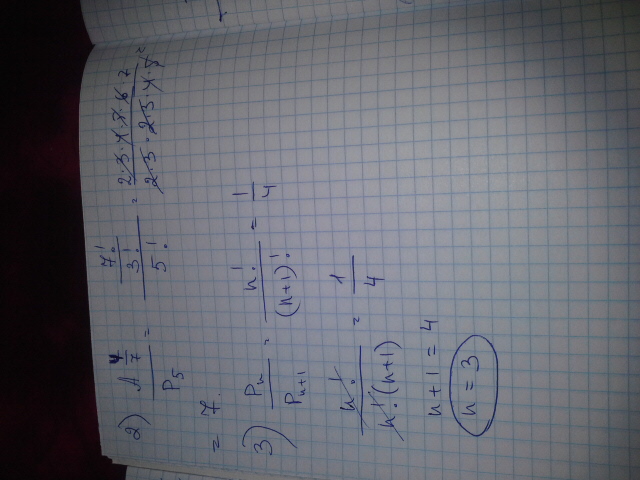 2) A 4/7 / P5 = 7!/3! / 5! = 2·3·4·5·6·7 / 2·3·2·3·4·5 =
= 7
3) Pn / Pn+1 = n! / (n+1)! = 1/4
n! / n!·(n+1) = 1/4
n+1 = 4
n = 3